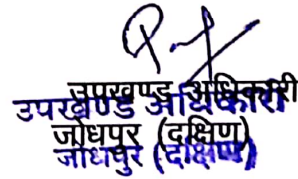 उपखण्ड अधिकारी
उपखण्ड अधिकारी
जोधपुर (दक्षिण)
जोधपुर (दक्षिण)